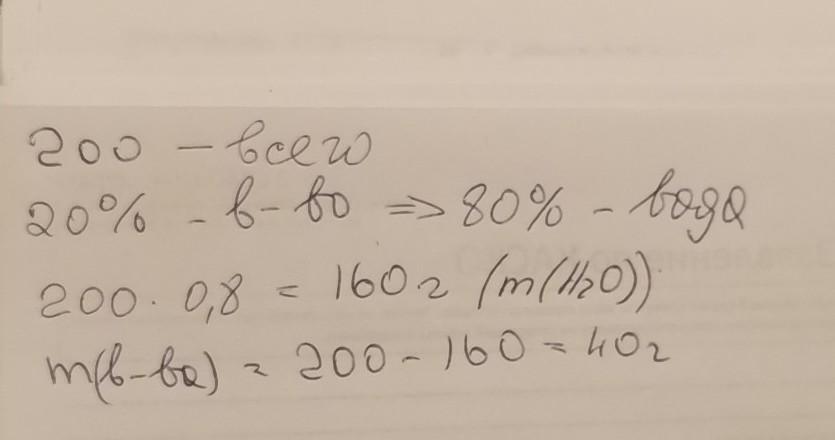 200 - всего
20% - в-во => 80% - вода
200 · 0,8 = 160 г (m(H2O))
m(в-ва) = 200 - 160 = 40 г